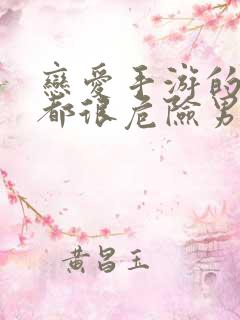 戀愛手游的
都很危險男
黃昌玉